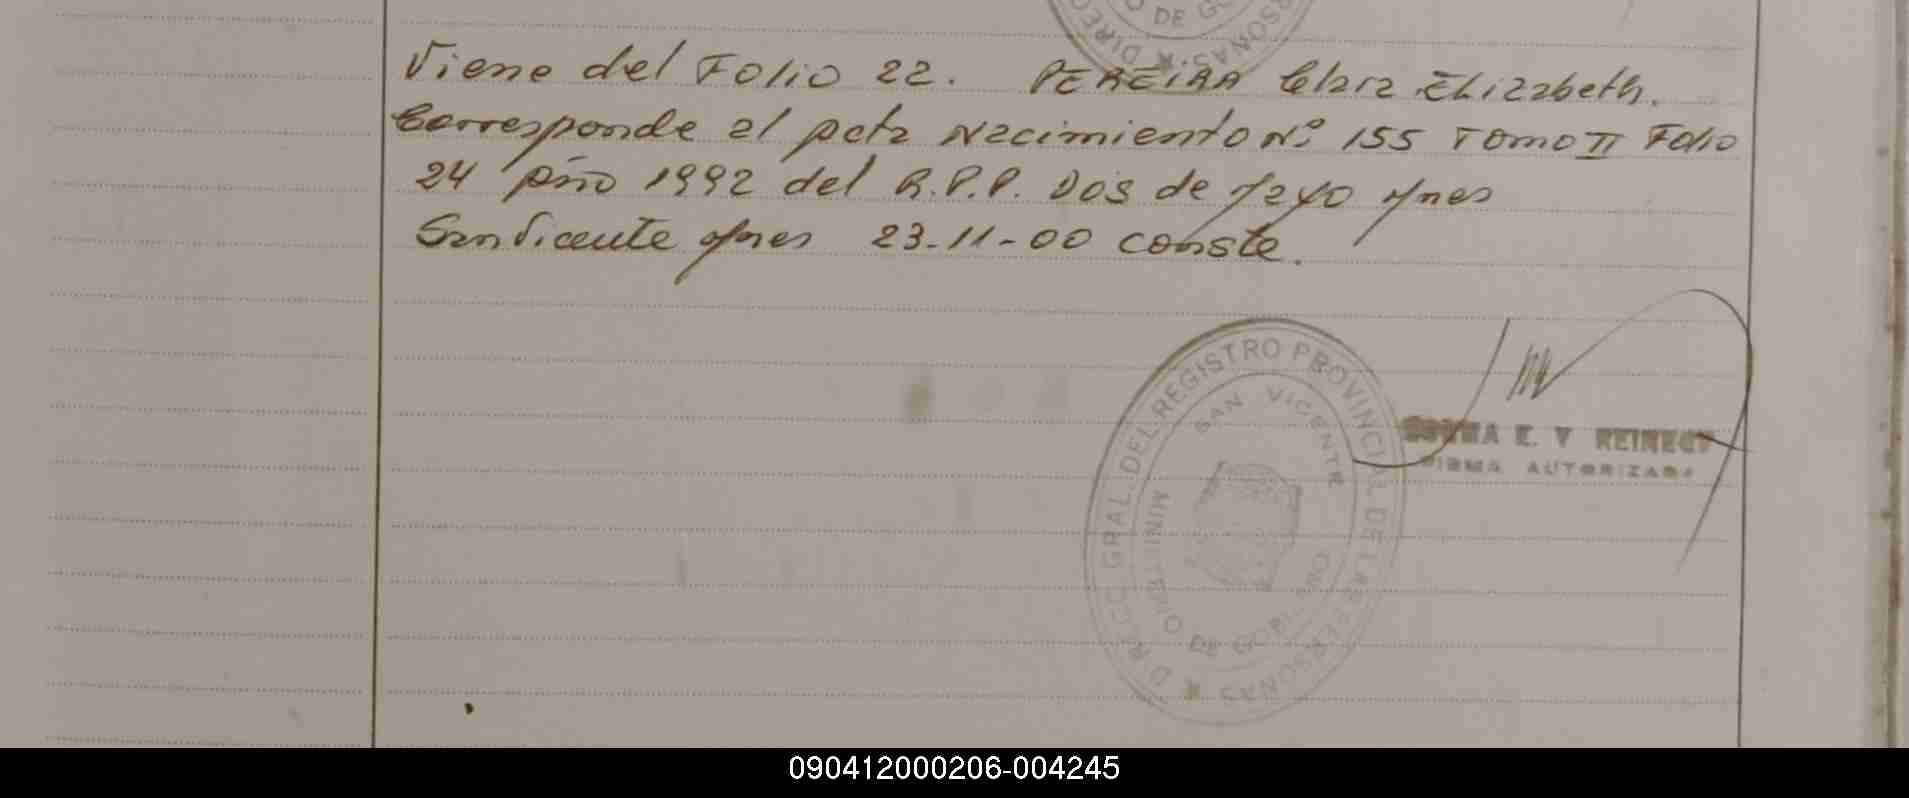 DE GO
DIREC
SONAS
Viene del Folio 22. PEREIRA Clara Elizabeth.
Corresponde al Acta Nacimiento Nº 155 Tomo II Folio
24 Año 1992 del R.P.P. Dos de Mayo Mnes
San Vicente Mnes 23-11-00 conste.
DIRECC. GRAL. DEL REGISTRO PROVINCIAL DE LAS PERSONAS
SAN VICENTE
MINISTERIO DE GOBIERNO
E. V REINECK
FIRMA AUTORIZADA
090412000206-004245